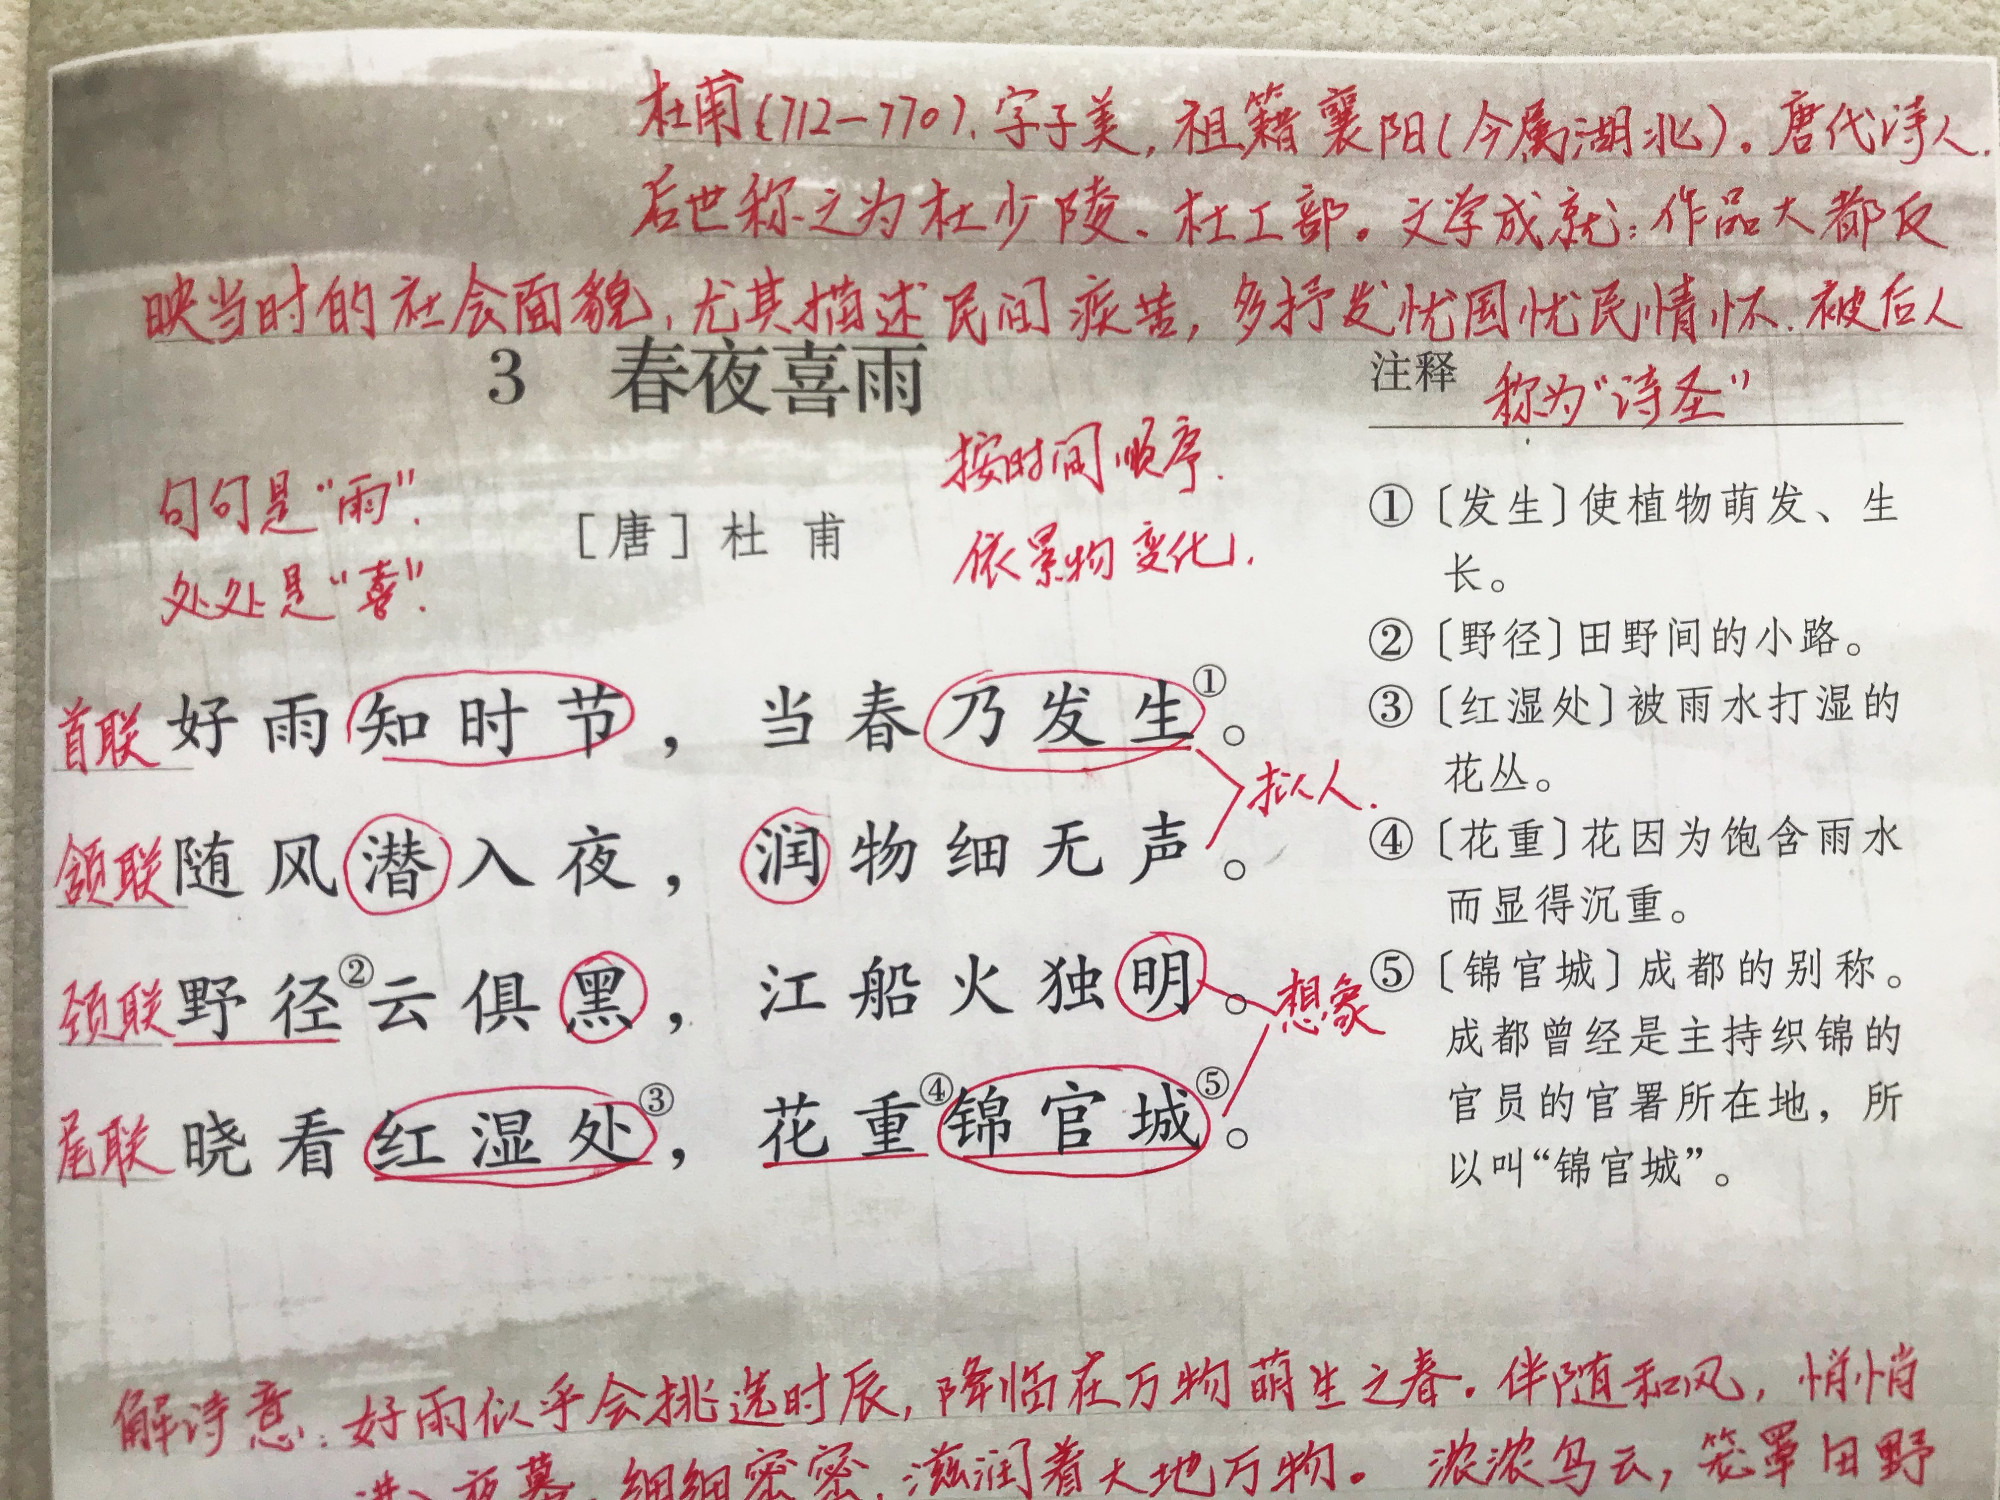 杜甫(712—770).字子美,祖籍襄阳(今属湖北)。唐代诗人.
后世称之为杜少陵、杜工部。文学成就:作品大都反
映当时的社会面貌,尤其描述民间疾苦,多抒发忧国忧民情怀.被后人
称为“诗圣”
3 春夜喜雨
句句是“雨”.
处处是“喜”.
[唐] 杜甫
按时间顺序.
依景物变化.
首联 好雨知时节，当春乃发生①。
颔联 随风潜入夜，润物细无声。
拟人.
颈联 野径②云俱黑，江船火独明。
想象
尾联 晓看红湿处③，花重④锦官城⑤。
注释
①〔发生〕使植物萌发、生
长。
②〔野径〕田野间的小路。
③〔红湿处〕被雨水打湿的
花丛。
④〔花重〕花因为饱含雨水
而显得沉重。
⑤〔锦官城〕成都的别称。
成都曾经是主持织锦的
官员的官署所在地，所
以叫“锦官城”。
解诗意:好雨似乎会挑选时辰,降临在万物萌生之春。伴随和风,悄悄
进入夜幕.细细密密,滋润着大地万物。浓浓乌云,笼罩田野